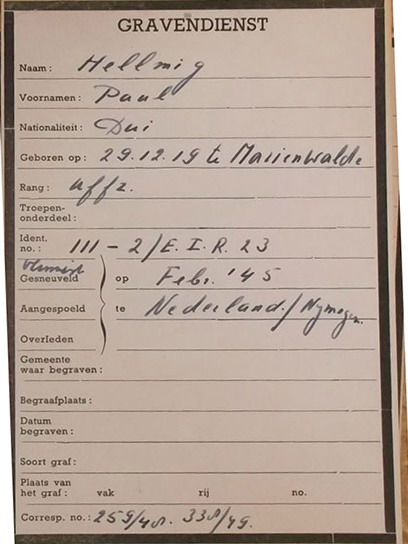 GRAVENDIENST
Naam: Hellmig
Voornamen: Paul
Nationaliteit: Dui
Geboren op: 29.12.19 te Marienwalde
Rang: Uffz.
Troepen-
onderdeel:
Ident.
no.: III - 2/E.I.R. 23
Vermist
Gesneuveld op Febr. '45
Aangespoeld te Nederland./Nymegen.
Overleden
Gemeente
waar begraven:
Begraafplaats:
Datum
begraven:
Soort graf:
Plaats van
het graf: vak rij no.
Corresp. no.: 259/48. 338/49.